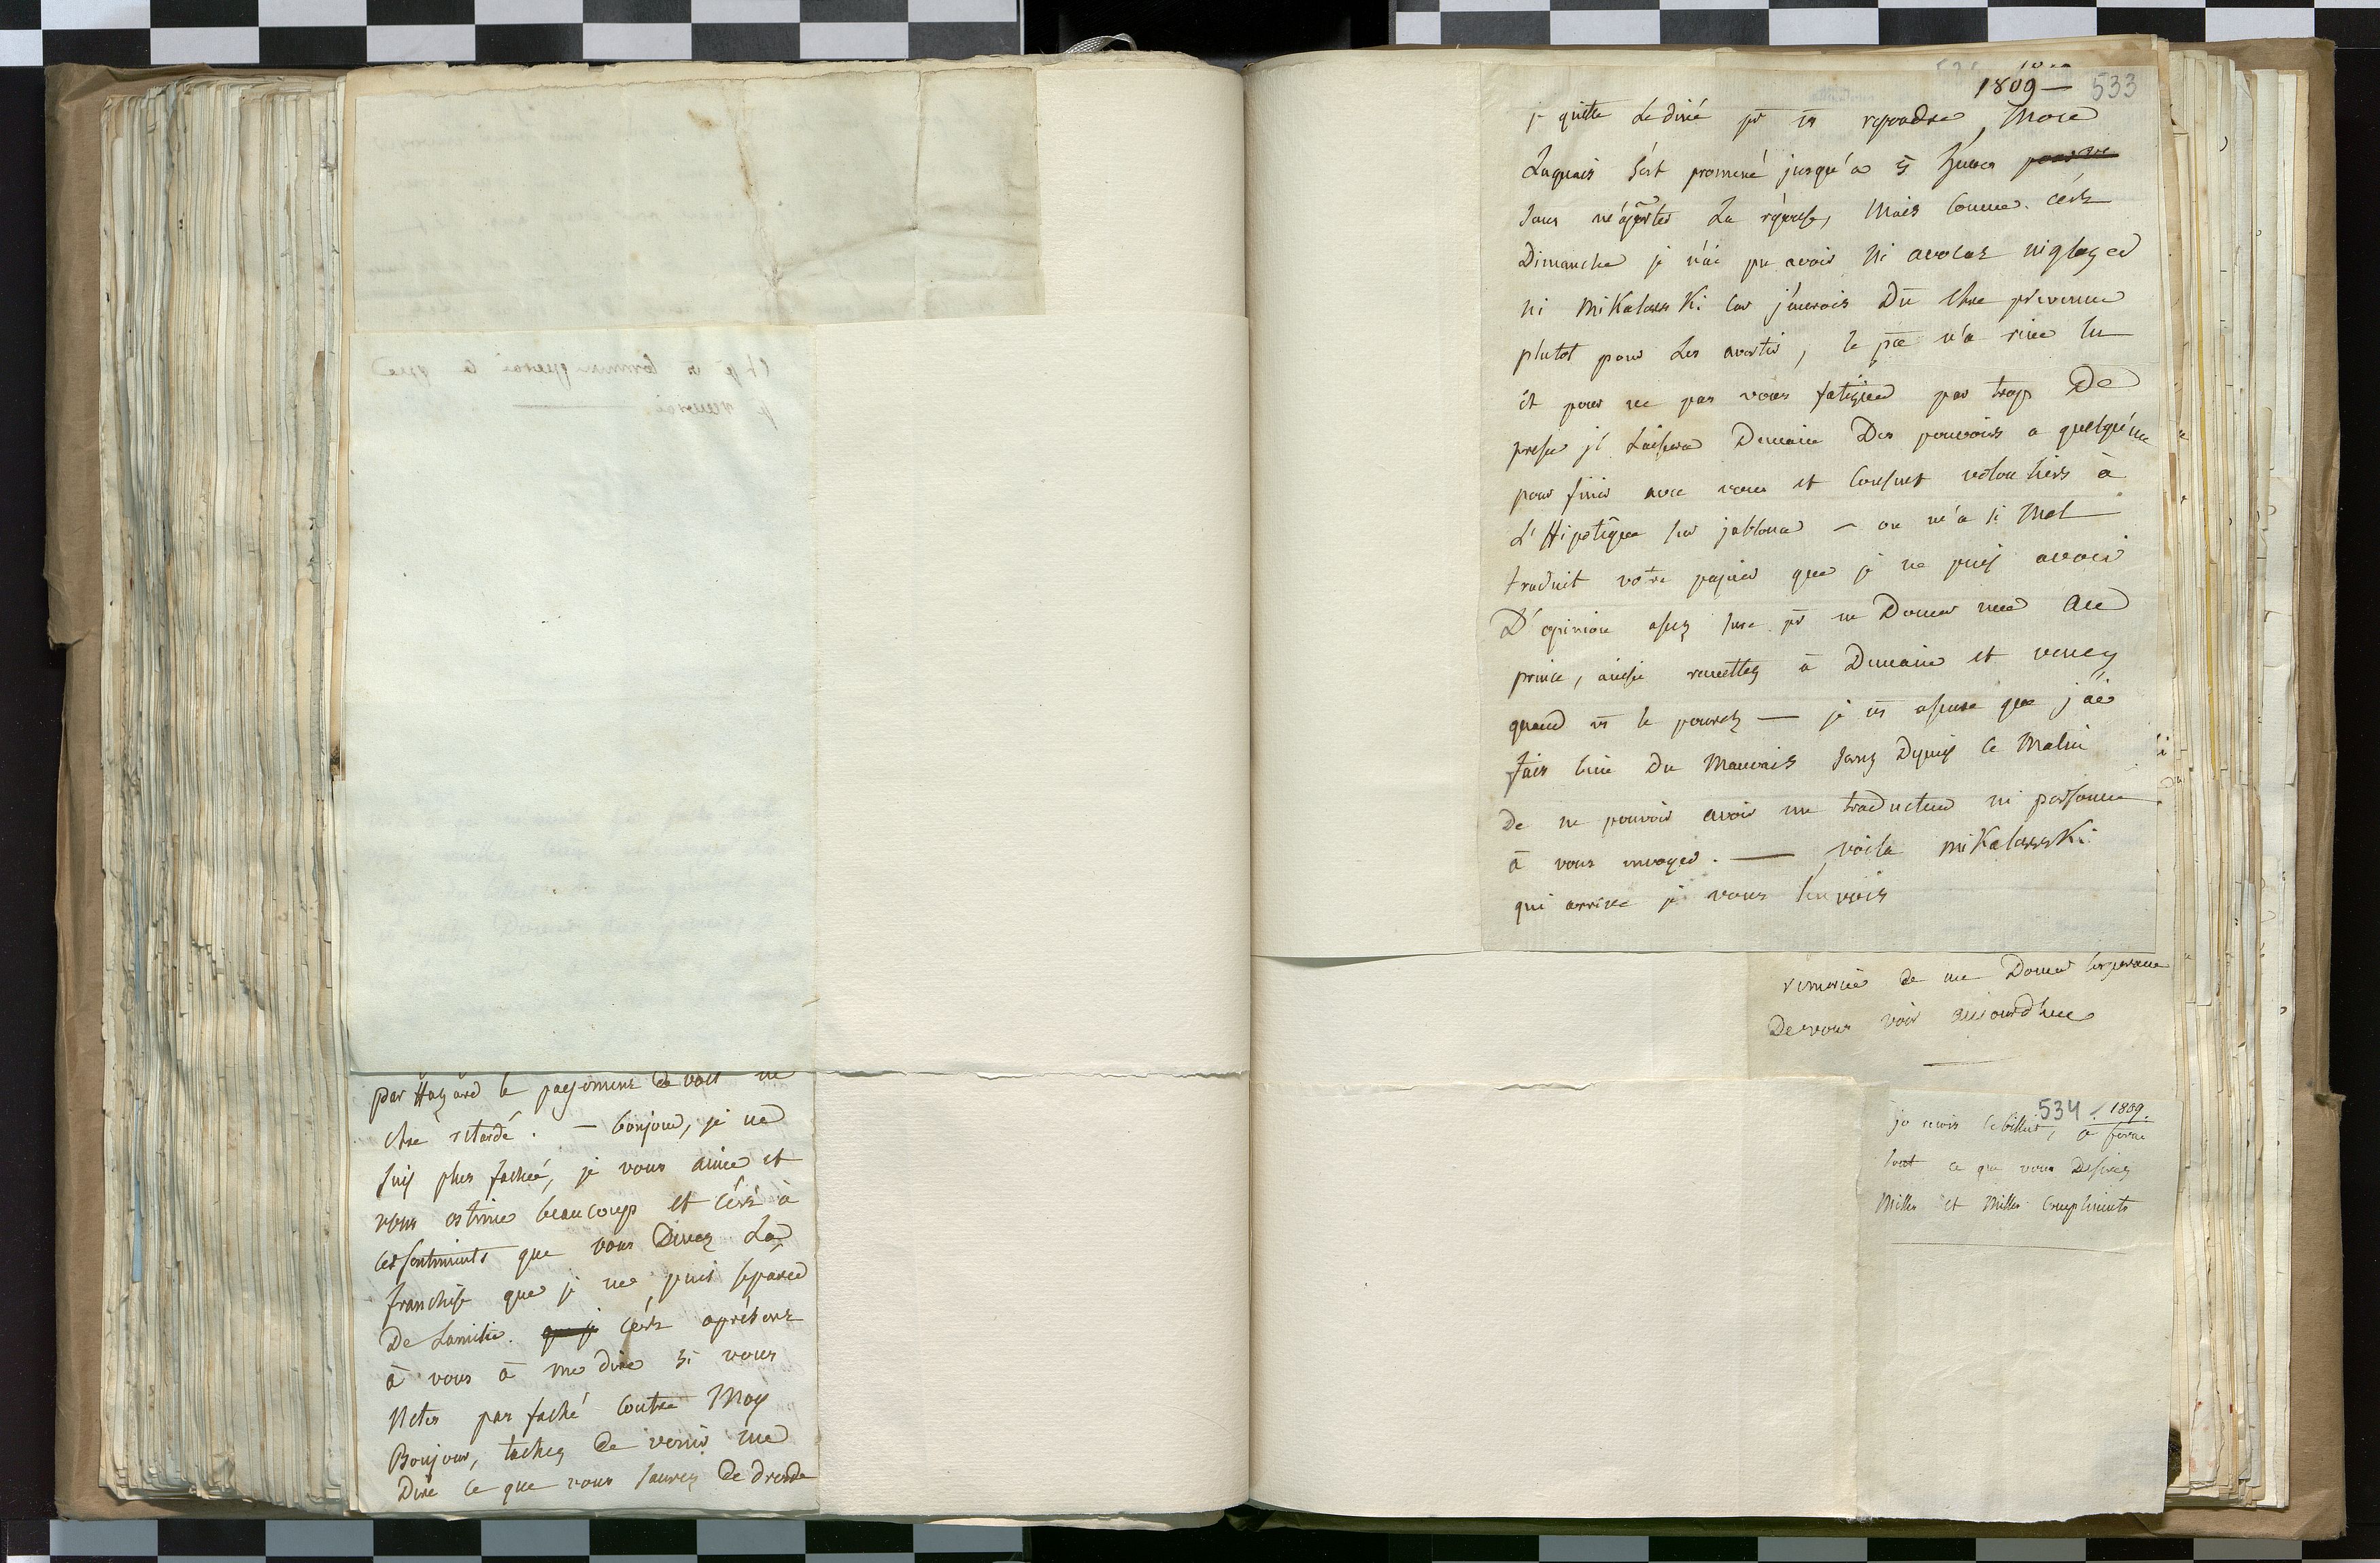 par Hazard le payement devoit
etre retardé. — bonjour, je ne
suis plus fachée, je vous aime et
vous estime beaucoup et c'est à
ces sentiments que vous Devez La
franchise que je ne puis separer
De Lamitié. que je c'est apresent
à vous à me dire si vous
N'etes pas faché contre Moy
Bonjour, tachez De venir me
Dire ce que vous saurez De dresde
1809 — 533
je quitte Le diné pr vs repondre, Mon
Laquais s'est promené jusqu'a 5 heures pour me
sans m'aporter La réponse, Mais comme c'est
Dimanche je n'ai pu avoir Ni avocat ni
ni MiKalowsKi car j'aurois Dû etre prevenue
plutot pour Les avertir, le pce n'a rien lu
et pour ne pas vous fatiguer par trop De
presse je Laissera Demain Des pouvoirs a quelqu'un
pour finir avec vous et consent volontiers à
L'Hipotêque sur jablona — on m'a si Mal
traduit votre papier que je ne puis avoir
D'opinion assez sure pr en Donner une au
prince, ainsi remettez à Demain et venez
quand vs le pourez — je vs assure que j'ai
fais bien Du Mauvais sang Depuis ce Matin
De ne pouvoir avoir un traducteur ni personne
à vous envoyer. — voila miKalowsKi
qui arrive je vous l'envois
remercie de me Donner l'esperance
De vous voir aujourdhui
534 1809.
je recois le billet, a ferai
tout ce que vous Desirez
Milles et Milles Compliments